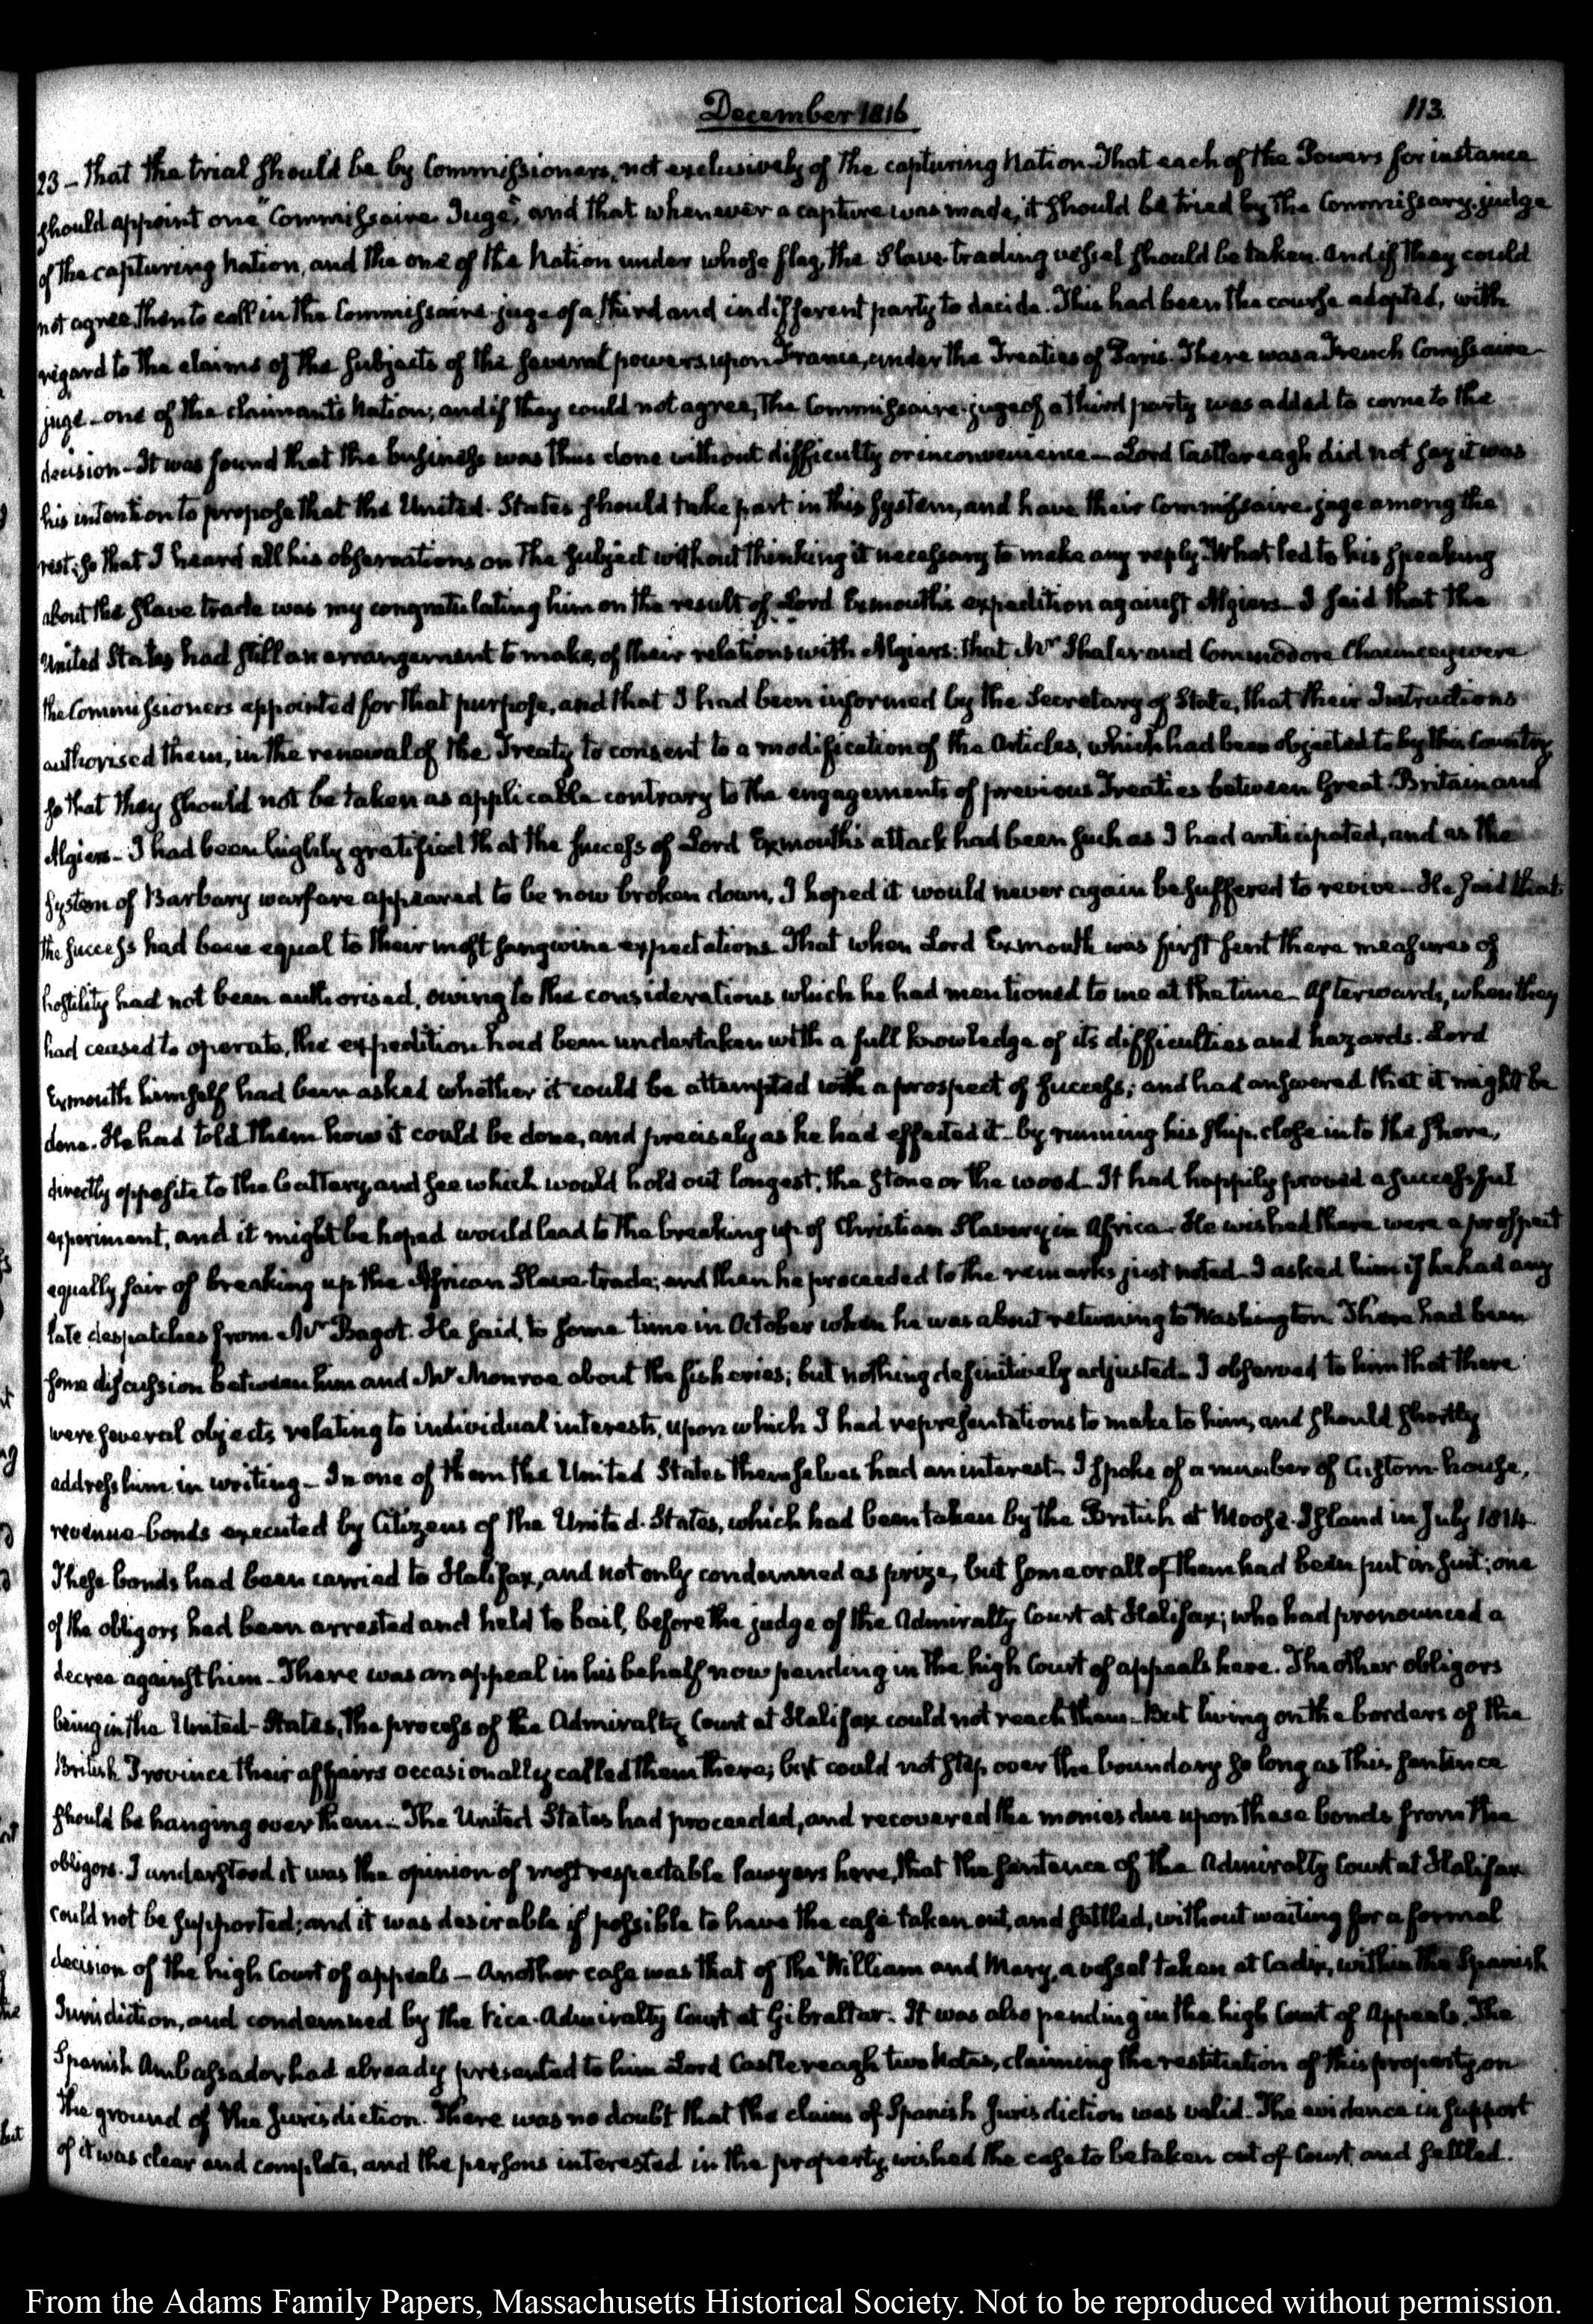 December 1816
113.
23 – that the trial should be by Commissioners, not exclusively of the capturing Nation. That each of the Powers for instance
should appoint one "Commissaire Juge", and that whenever a capture was made, it should be tried by the Commissary-judge
of the capturing Nation, and the one of the Nation under whose flag, the Slave-trading vessel should be taken. And if they could
not agree, then to call in the Commissaire-juge of a third and indifferent party to decide. This had been the course adopted, with
regard to the claims of the Subjects of the several powers, upon France, under the Treaties of Paris. There was a French Commissaire
juge – one of the claimants Nation; and if they could not agree, the Commissaire-juge of a third party was added to come to the
decision – It was found that the business was thus done without difficulty or inconvenience – Lord Castlereagh did not say it was
his intention to propose that the United-States should take part in this System, and have their Commissaire-juge among the
rest; so that I heard all his observations on the subject without thinking it necessary to make any reply. What led to his speaking
about the slave trade was my congratulating him on the result of Lord Exmouth's expedition against Algiers – I said that the
United States had still an arrangement to make, of their relations with Algiers: that Mr Shaler and Commodore Chauncey were
the Commissioners appointed for that purpose, and that I had been informed by the Secretary of State, that their Instructions
authorised them, in the renewal of the Treaty to consent to a modification of the Articles, which had been objected to by this Country
so that they should not be taken as applicable contrary to the engagements of previous Treaties between Great-Britain and
Algiers – I had been highly gratified that the success of Lord Exmouth's attack had been such as I had anticipated, and as the
system of Barbary warfare appeared to be now broken down, I hoped it would never again be suffered to revive – He said that
the success had been equal to their most sanguine expectations. That when Lord Exmouth was first sent there measures of
hostility had not been authorised, owing to the considerations which he had mentioned to me at the time – Afterwards, when they
had ceased to operate, the expedition had been undertaken with a full knowledge of its difficulties and hazards. Lord
Exmouth himself had been asked whether it could be attempted with a prospect of success; and had answered that it might be
done. He had told them how it could be done, and precisely as he had effected it – by running his ship close in to the shore,
directly opposite to the battery, and see which would hold out longest, the stone or the wood – It had happily proved a successful
experiment, and it might be hoped would lead to the breaking up of Christian Slavery in Africa – He wished there were a prospect
equally fair of breaking up the African Slave-trade; and then he proceeded to the remarks just noted – I asked him if he had any
late despatches from Mr Bagot. He said, to some time in October when he was about returning to Washington. There had been
some discussion between him and Mr Monroe about the fisheries; but nothing definitively adjusted – I observed to him that there
were several objects relating to individual interests, upon which I had representations to make to him, and should shortly
address him in writing – In one of them the United States themselves had an interest – I spoke of a number of Custom-house,
revenue-bonds executed by Citizens of the United-States, which had been taken by the British at Moose-Island in July 1814.
These bonds had been carried to Halifax, and not only condemned as prize, but some or all of them had been put in suit; one
of the obligors had been arrested and held to bail, before the judge of the Admiralty Court at Halifax; who had pronounced a
decree against him – There was an appeal in his behalf now pending in the high Court of appeals here. The other obligors
being in the United-States, the process of the Admiralty Court at Halifax could not reach them – But living on the borders of the
British Province their affairs occasionally called them there; but could not step over the boundary so long as this sentence
should be hanging over them – The United States had proceeded, and recovered the monies due upon these bonds from the
obligors. I understood it was the opinion of most respectable lawyers here, that the sentence of the Admiralty Court at Halifax
could not be supported; and it was desirable if possible to have the case taken out, and settled, without waiting for a formal
decision of the high Court of appeals – Another case was that of the William and Mary, a vessel taken at Cadiz, within the Spanish
Jurisdiction, and condemned by the Vice-Admiralty Court at Gibraltar. It was also pending in the high Court of Appeals. The
Spanish Ambassador had already presented to him Lord Castlereagh two Notes, claiming the restitution of this property, on
the ground of the Jurisdiction. There was no doubt that the claim of Spanish Jurisdiction was valid. The evidence in support
of it was clear and complete, and the persons interested in the property wished the case to be taken out of Court and settled.
From the Adams Family Papers, Massachusetts Historical Society. Not to be reproduced without permission.